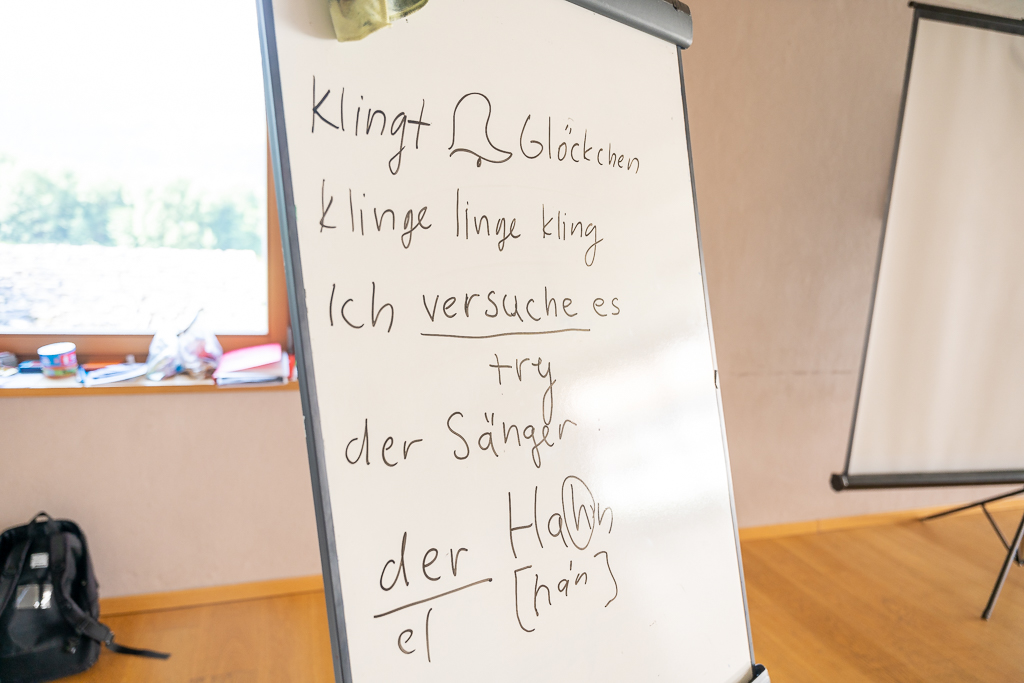 Klingt Glöckchen
klinge linge kling
Ich versuche es
try
der Sänger
der Hahn
el [há'n]